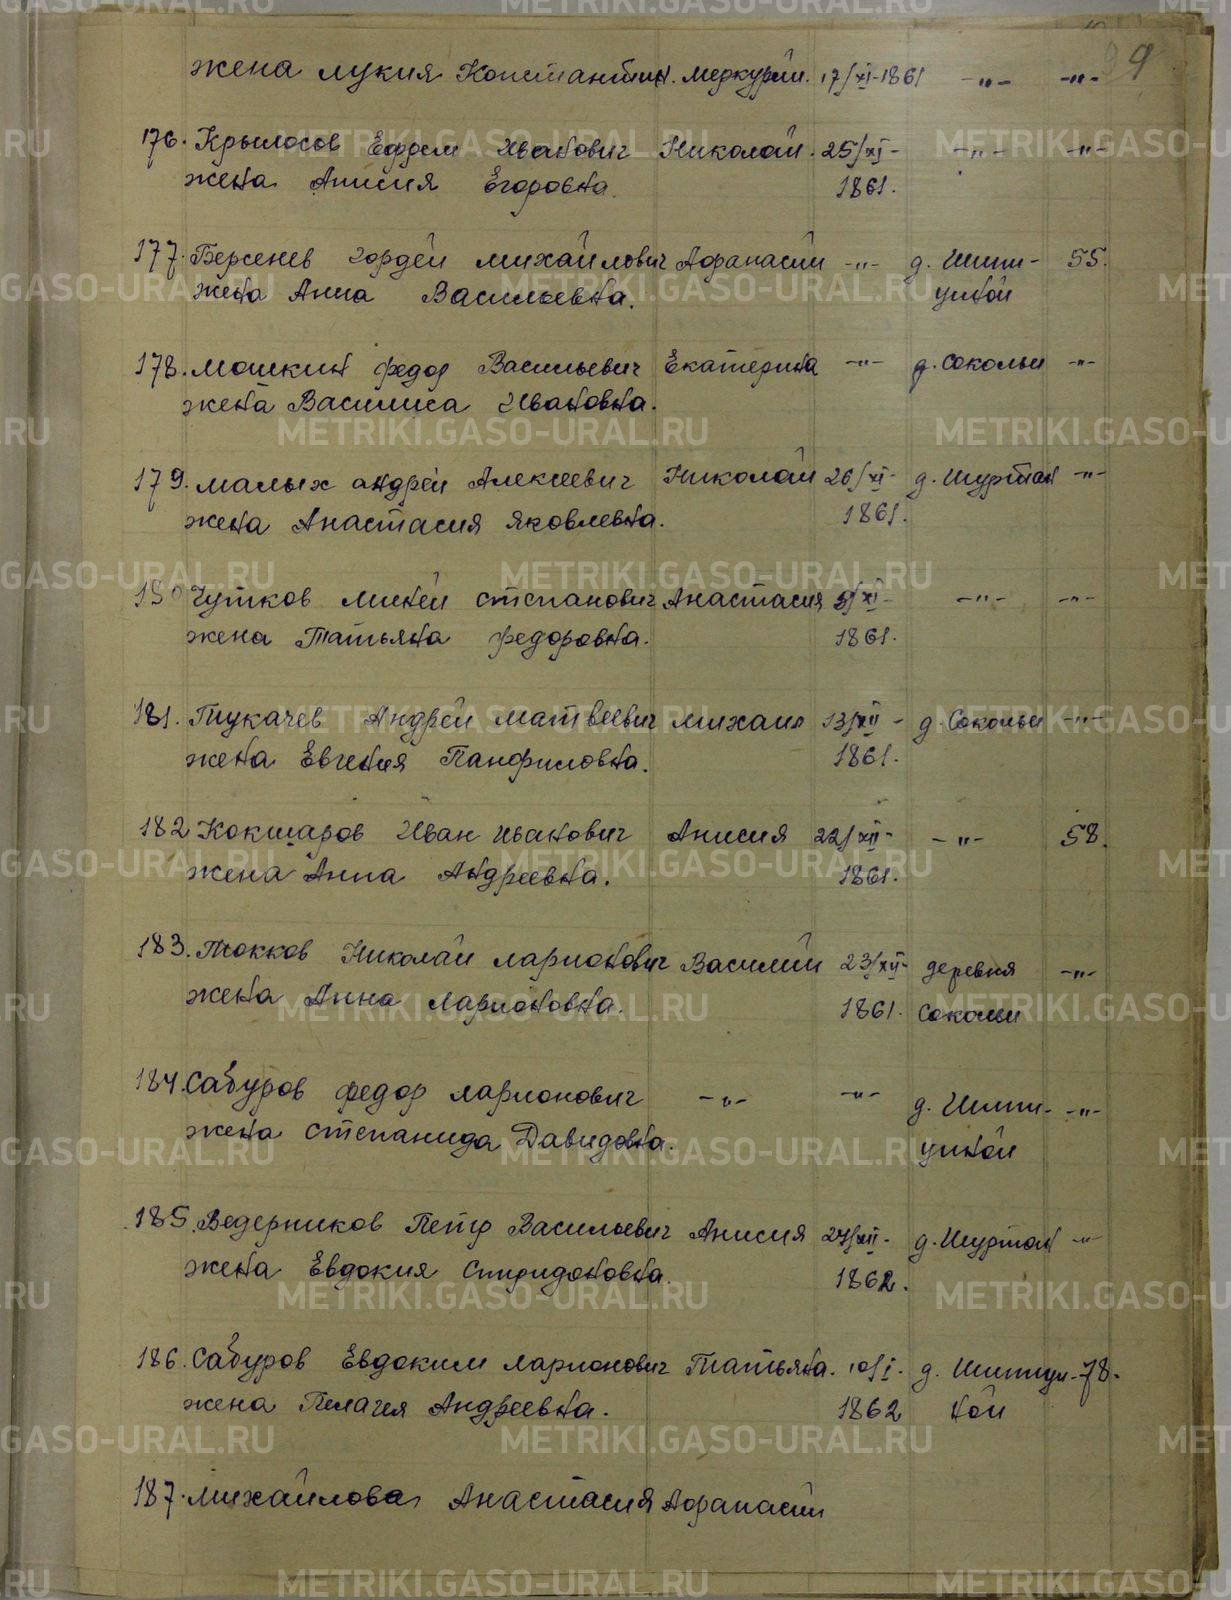 99
жена Лукия Константин. Меркурий. 17/XI-1861 -"- -"-
176. Крылосов Ефрем Иванович Николай. 25/XI- -"- -"-
жена Анисия Егоровна. 1861.
177. Берсенев Гордей Михайлович Афанасий -"- д. Шипи- 55.
жена Анна Васильевна. уиной
178. Мошкин Федор Васильевич Екатерина -"- д. Сокольи -"-
жена Василиса Ивановна.
179. Малых Андрей Алексеевич Николай 26/XI- д. Шуртан -"-
жена Анастасия Яковлевна. 1861.
180 Чутков Миней Степанович Анастасия 5/XI- -"- -"-
жена Татьяна Федоровна. 1861.
181. Тукачев Андрей Матвеевич Михаил 13/XII- д. Сокольи -"-
жена Евгения Панфиловна. 1861.
182 Кокшаров Иван Иванович Анисия 22/XII- -"- 58.
жена Анна Андреевна. 1861.
183. Токков Николай Ларионович Василий 23/XII- деревня -"-
жена Анна Ларионовна. 1861. Сокольи
184. Сабуров Федор Ларионович -"- -"- д. Шипи- -"-
жена Степанида Давидовна. уиной
185. Ведерников Петр Васильевич Анисия 27/XII- д. Шуртан -"-
жена Евдокия Спиридоновна. 1862.
186. Сабуров Евдоким Ларионович Татьяна. 10/I- д. Шипчуи- 78.
жена Пелагея Андреевна. 1862 ной
187. Михайлова Анастасия Афанасий
METRIKI.GASO-URAL.RU